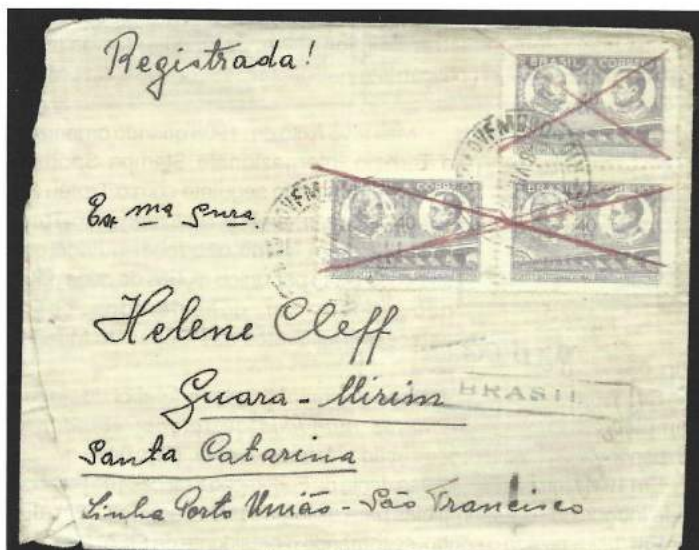 Registrada!
BRASIL CORREIO
BRASIL CORREIO
40
BRASIL CORREIO
40
Exma Snra.
Helene Cleff
Guara-Mirim
BRASIL
Santa Catarina
Linha Porto União - São Francisco